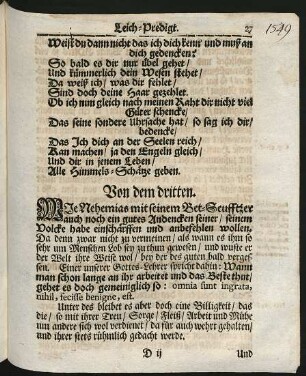 Leich-Predigt. 27
1549
Weist du dann nicht das ich dich kenn und muß an
dich gedencken?
So bald es dir nur übel geher/
Und kümmerlich dein Wesen stehet/
Da weiß ich/ was dir fehlet/
Sind doch deine Haar gezehlet.
Ob ich nun gleich nach meinen Raht dir nicht viel
Güter schencke/
Das seine sondere Uhrsache hat/ so sag ich dir/
bedencke/
Das Ich dich an der Seelen reich/
Kan machen/ ja den Engeln gleich/
Und dir in jenem Leben/
Alle Himmels-Schätze geben.
Von dem dritten.
WJe Nehemias mit seinem Bet-Seufftzer
auch noch ein gutes Andencken seiner/ seinem
Volcke habe einschärffen und anbefehlen wollen.
Da denn zwar nicht zu verneinen/ als wann es ihm so
sehr um Menschen Lob sey zu thun gewesen/ und wuste er
der Welt ihre Weise wol/ bey der des guten bald vergessen.
Einer unserer Gottes-Lehrer spricht dahin: Wann
man schon lange an ihr arbeitet und das Beste thut/
gehet es doch gemeiniglich so: omnia sunt ingrata,
nihil, fecisse benigne, est.
Unter des bleibet es aber doch eine Billigkeit/ das
die/ so mit ihrer Treu/ Sorge/ Fleiß/ Arbeit und Mühe
um andere sich wol verdienet/ dafür auch wehrt gehalten/
und ihrer stets rühmlich gedacht werde.
D ij Und